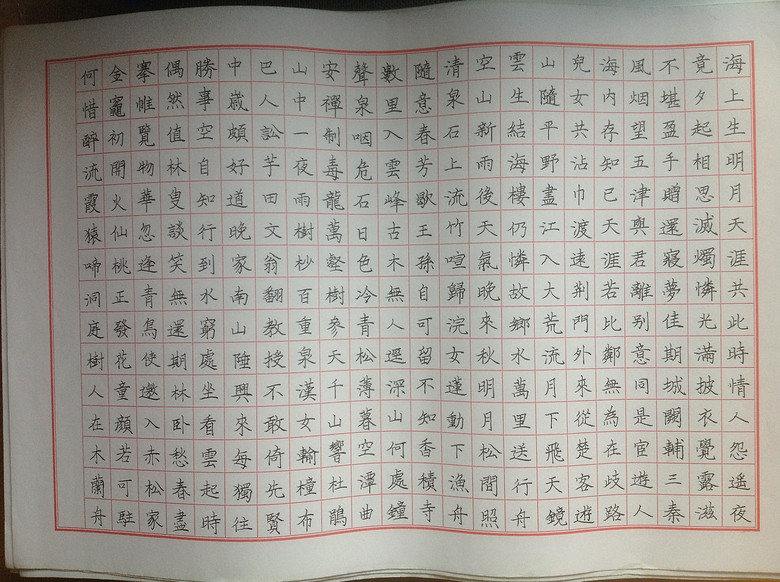 海上生明月天涯共此時情人怨遥夜
竟夕起相思滅燭憐光滿披衣覺露滋
不堪盈手贈還寢夢佳期城闕輔三秦
風烟望五津與君離别意同是宦遊人
海内存知已天涯若比鄰無為在歧路
兒女共沾巾渡遠荆門外來從楚客遊
山隨平野盡江入大荒流月下飛天鏡
雲生結海樓仍憐故鄉水萬里送行舟
空山新雨後天氣晚來秋明月松間照
清泉石上流竹喧歸浣女蓮動下漁舟
隨意春芳歇王孫自可留不知香積寺
數里入雲峰古木無人逕深山何處鐘
聲泉咽危石日色冷青松薄暮空潭曲
安禪制毒龍萬壑樹參天千山響杜鵑
山中一夜雨樹杪百重泉漢女輸橦布
巴人訟芋田文翁翻教授不敢倚先賢
中歲頗好道晚家南山陲興來每獨往
勝事空自知行到水窮處坐看雲起時
偶然值林叟談笑無還期林卧愁春盡
搴惟覽物華忽逢青鳥使邀入赤松家
金竈初開火仙桃正發花童顏若可駐
何惜醉流霞猿啼洞庭樹人在木蘭舟